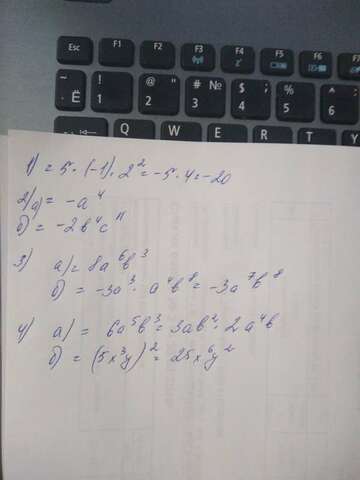 Esc F1 F2 F3 F4 F5 F6 F7
~ Ё ! 1 @ " 2 # № 3 $ ; 4 % 5 ^ : 6
Q W E R T
1) = 5 · (-1) · 2² = -5 · 4 = -20
2) а) = -a⁴
б) = -2b⁴c¹¹
3) а) = 8a⁶b³
б) = -3a³ · a⁴b⁸ = -3a⁷b⁸
4) а) = 6a⁵b³ = 3ab² · 2a⁴b
б) = (5x³y)² = 25x⁶y²